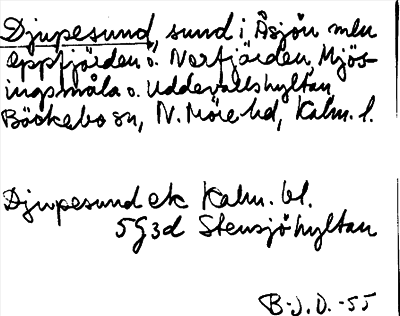 Djupesund, sund i Åsjön mlu
Oppfjärden o. Norfjärden, Mjös-
ingsmåla o. Uddevallshyltan,
Bäckebo sn, N. Möre hd, Kalm. l.
Djupesund ek Kalm. bl.
5G3d Stensjöhyltan
B-J.O. -55